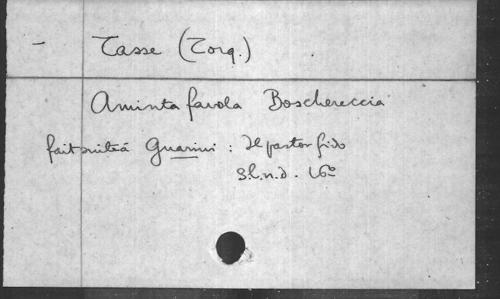 - Tasse (Torq.)
Aminta favola Boschereccia
fait suite à Guarini : Il pastor fido
S.l.n.d. 16°